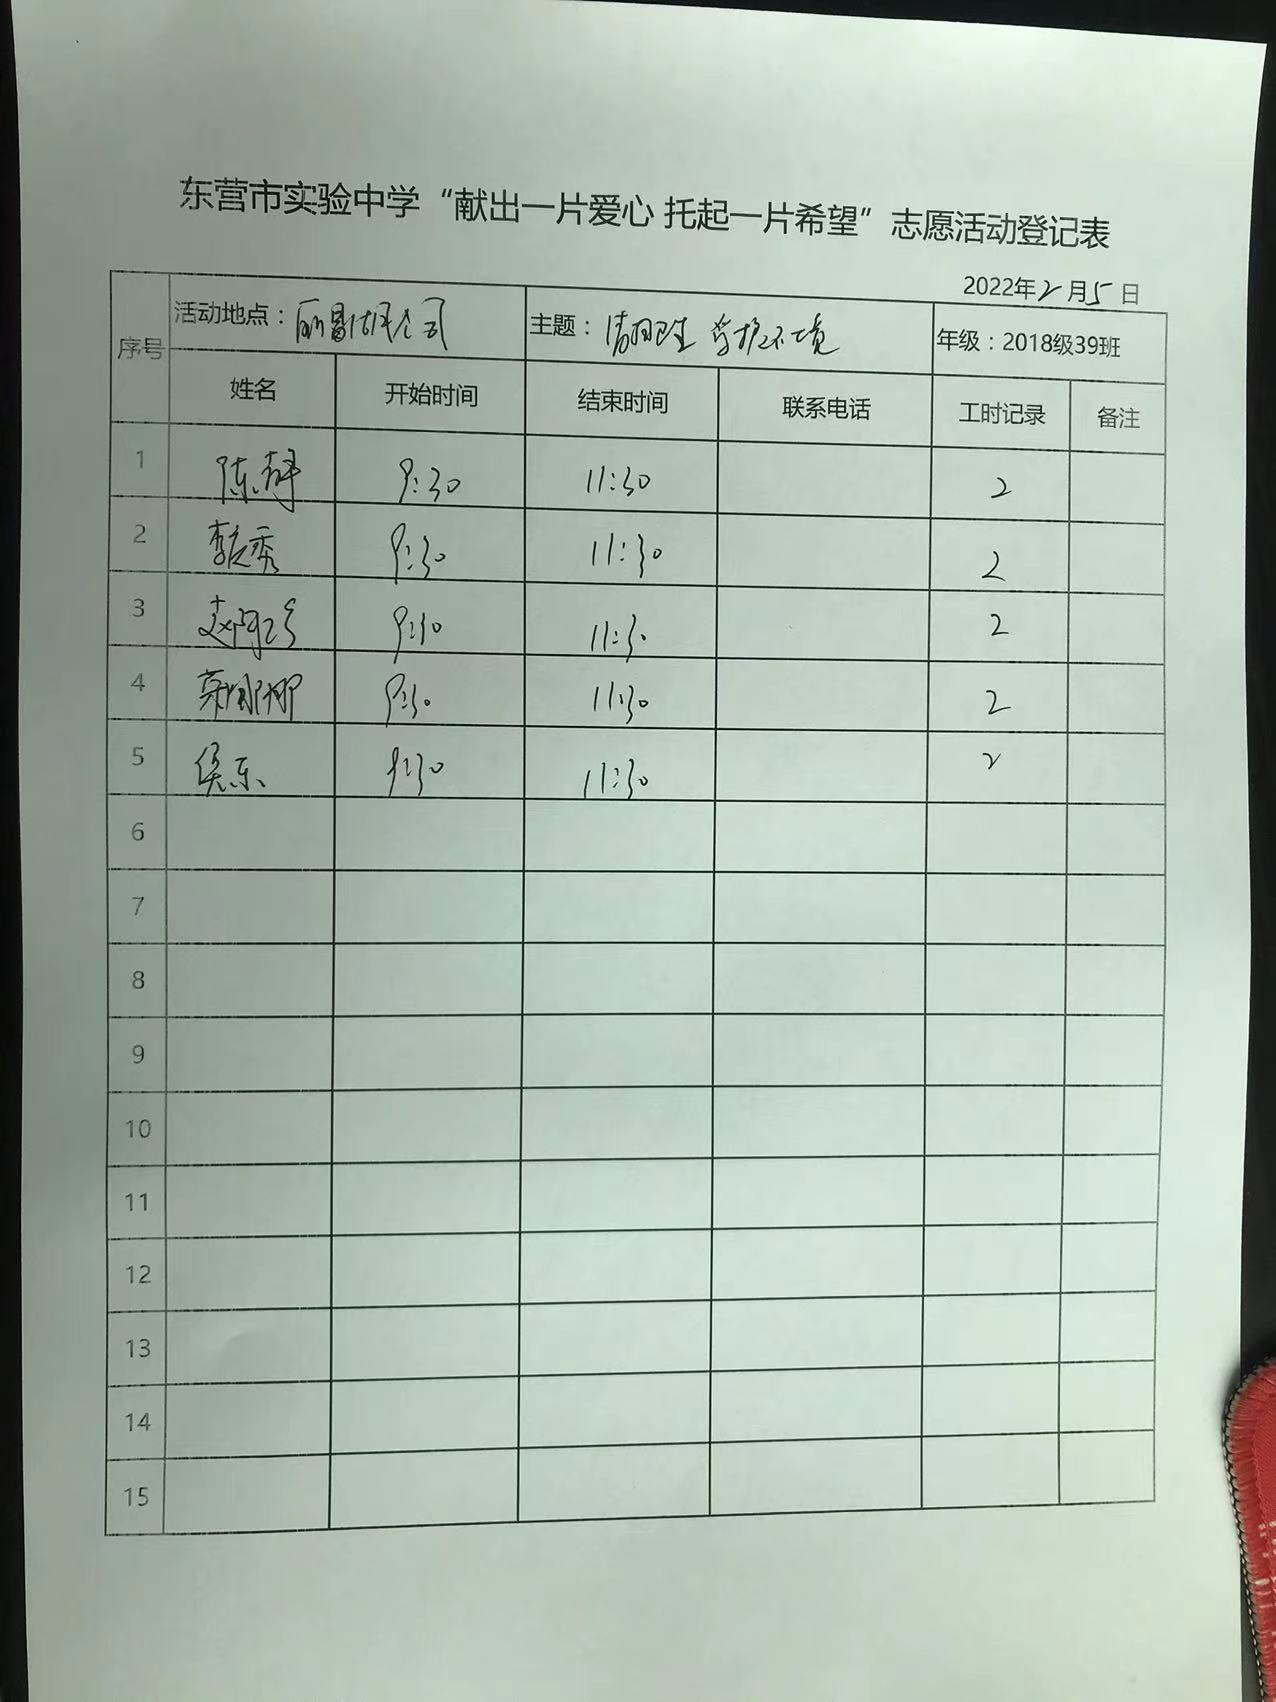 东营市实验中学“献出一片爱心 托起一片希望”志愿活动登记表
2022年2月5日
序号 活动地点： 公司 主题： 卫生 环境 年级：2018级39班
姓名 开始时间 结束时间 联系电话 工时记录 备注
1 陈静 9:30 11:30 2
2 秀 9:30 11:30 2
3 赵 9:30 11:30 2
4 娜娜 9:30 11:30 2
5 侯东 9:30 11:30 2
6
7
8
9
10
11
12
13
14
15